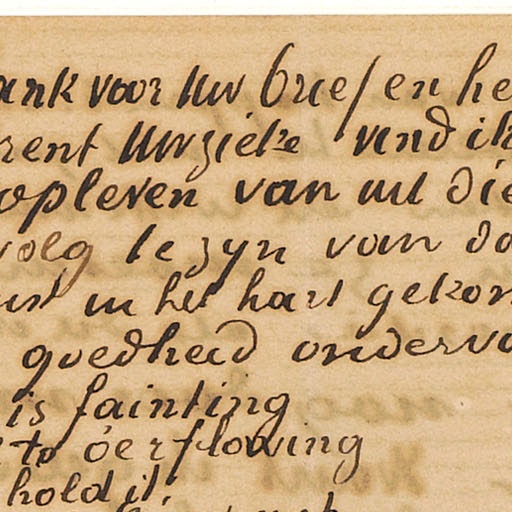 ank voor Uw brief en he
rent Uw ziekte vind ik
opleven van uit die
volg te zyn van da
uist in het hart gekom
goedheid onderva
is fainting
to o'erflowing
hold it.